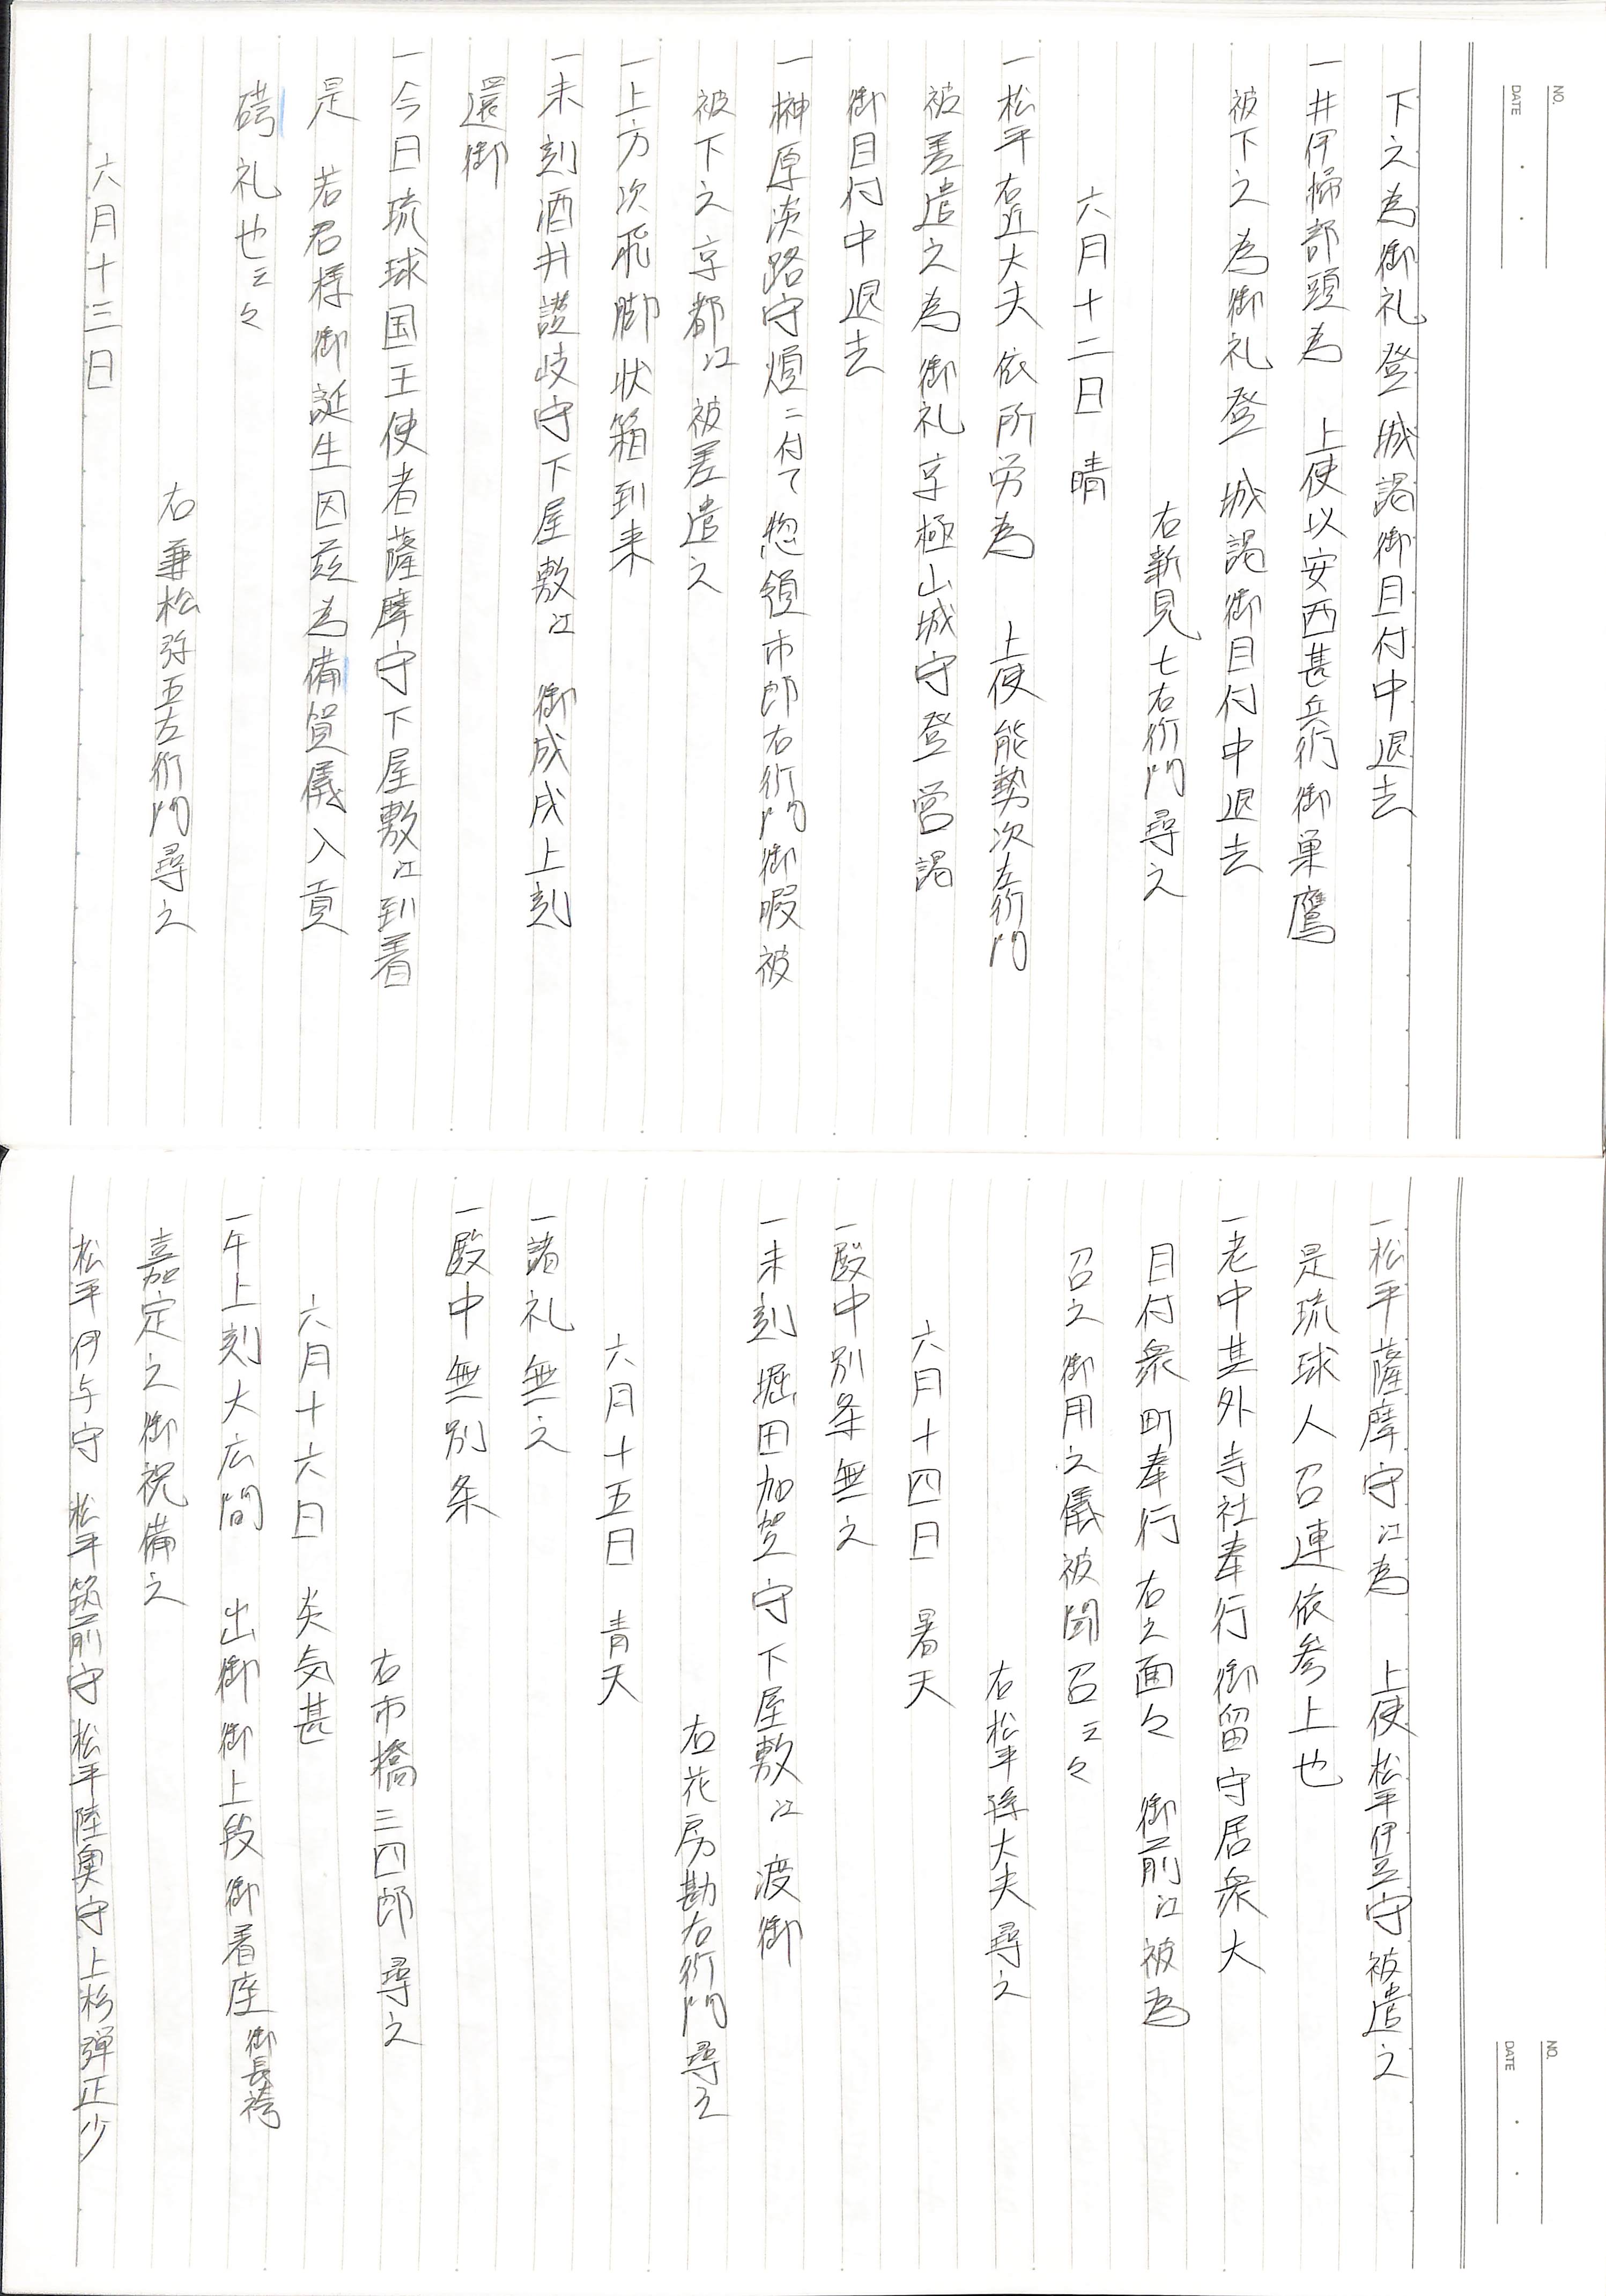 NO.
DATE
下之為御礼登 城謁御目付中退去
一井伊掃部頭為 上使以安西甚兵衛御巣鷹
被下之為御礼登 城謁御目付中退去
右新見七右衛門尋之
六月十二日 晴
一松平右近大夫依所労為 上使能勢次左衛門
被差遣之為御礼京極山城守登 営謁
御目付中退去
一榊原淡路守煩ニ付て惣領市郎右衛門御暇被
被下之京都江被差遣之
一上方次飛脚状箱到来
一未刻酒井讃岐守下屋敷江 御成戌上刻
還御
一今日琉球国王使者薩摩守下屋敷江到着
是 若君様御誕生因茲為備賀儀入貢
聘礼也云々
右兼松弥五左衛門尋之
六月十三日
NO.
DATE
一松平薩摩守江為 上使松平伊豆守被遣之
是琉球人召連依参上也
一老中其外寺社奉行御留守居衆大
目付衆町奉行右之面々 御前江被為
召之御用之儀被聞召云々
右松平隼大夫尋之
六月十四日 暑天
一殿中別条無之
一未刻堀田加賀守下屋敷江 渡御
右花房勘右衛門尋之
六月十五日 青天
一諸礼無之
一殿中無別条
右市橋三四郎尋之
六月十六日 炎気甚
一午上刻大広間 出御御上段御着座御長袴
嘉定之御祝備之
松平伊与守 松平筑前守 松平陸奥守上杉弾正少